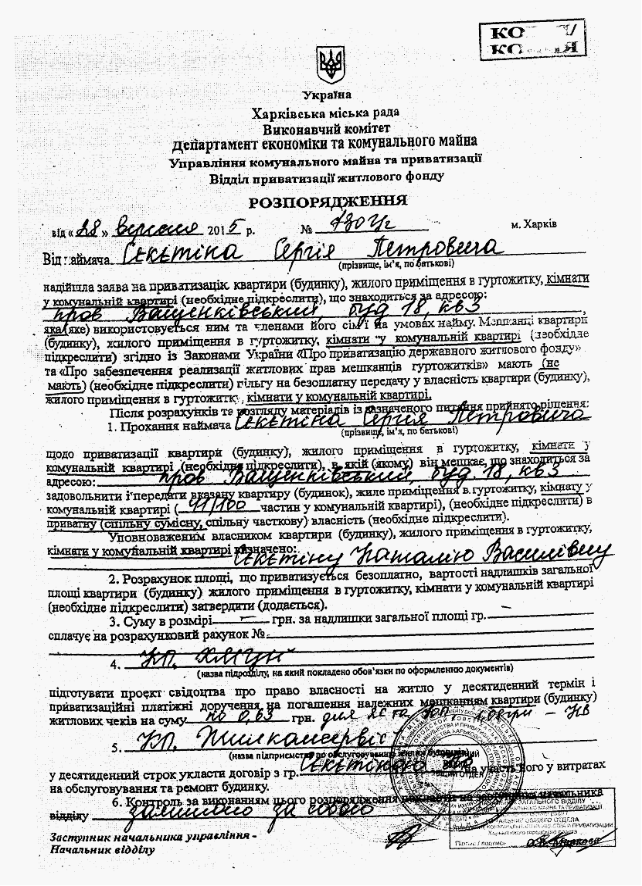 КОПІЯ
Україна
Харківська міська рада
Виконавчий комітет
Департамент економіки та комунального майна
Управління комунального майна та приватизації
Відділ приватизації житлового фонду
РОЗПОРЯДЖЕННЯ
від « 28 » вересня 2015 р. № м. Харків
Від наймача Секєтіна Сергія Петровича
(прізвище, ім'я, по батькові)
надійшла заява на приватизацію квартири (будинку), жилого приміщення в гуртожитку, кімнати
у комунальній квартирі (необхідне підкреслити), що знаходиться за адресою:
пров Ващенківський, буд 18, кв 3
яка(яке) використовується ним та членами його сім'ї на умовах найму. Мешканці квартири
(будинку), жилого приміщення в гуртожитку, кімнати у комунальній квартирі (необхідне
підкреслити) згідно із Законами України «Про приватизацію державного житлового фонду»
та «Про забезпечення реалізації житлових прав мешканців гуртожитків» мають (не
мають) (необхідне підкреслити) пільгу на безоплатну передачу у власність квартири (будинку),
жилого приміщення в гуртожитку, кімнати у комунальній квартирі.
Після розрахунків та розгляду матеріалів із зазначеного питання прийнято рішення:
1. Прохання наймача Секєтіна Сергія Петровича
(прізвище, ім'я, по батькові)
щодо приватизації квартири (будинку), жилого приміщення в гуртожитку, кімнати у
комунальній квартирі (необхідне підкреслити), в якій (якому) він мешкає, що знаходиться за
адресою: пров Ващенківський, буд 18, кв 3
задовольнити і передати вказану квартиру (будинок), жиле приміщення в гуртожитку, кімнату у
комунальній квартирі ( 41/100 частин у комунальній квартирі), (необхідне підкреслити) в
приватну (спільну сумісну, спільну часткову) власність (необхідне підкреслити).
Уповноваженим власником квартири (будинку), жилого приміщення в гуртожитку,
кімнати у комунальній квартирі визначено: Секєтіну Наталію Василівну
2. Розрахунок площі, що приватизується безоплатно, вартості надлишків загальної
площі квартири (будинку) жилого приміщення в гуртожитку, кімнати у комунальній квартирі
(необхідне підкреслити) затвердити (додається).
3. Суму в розмірі грн. за надлишки загальної площі гр.
сплачує на розрахунковий рахунок №
4. КП
(назва підрозділу, на який покладено обов'язки по оформленню документів)
підготувати проєкт свідоцтва про право власності на житло у десятиденний термін і
приватизаційні платіжні доручення на погашення належних мешканцям квартири (будинку)
житлових чеків на суму по 0,63 грн.
5. КП Жилкомсервіс
(назва підприємства по обслуговуванню
у десятиденний строк укласти договір з гр. Секєтіною на участь його у витратах
на обслуговування та ремонт будинку.
6. Контроль за виконанням цього розпорядження начальника
відділу залишаю за собою
Заступник начальника управління -
Начальник відділу